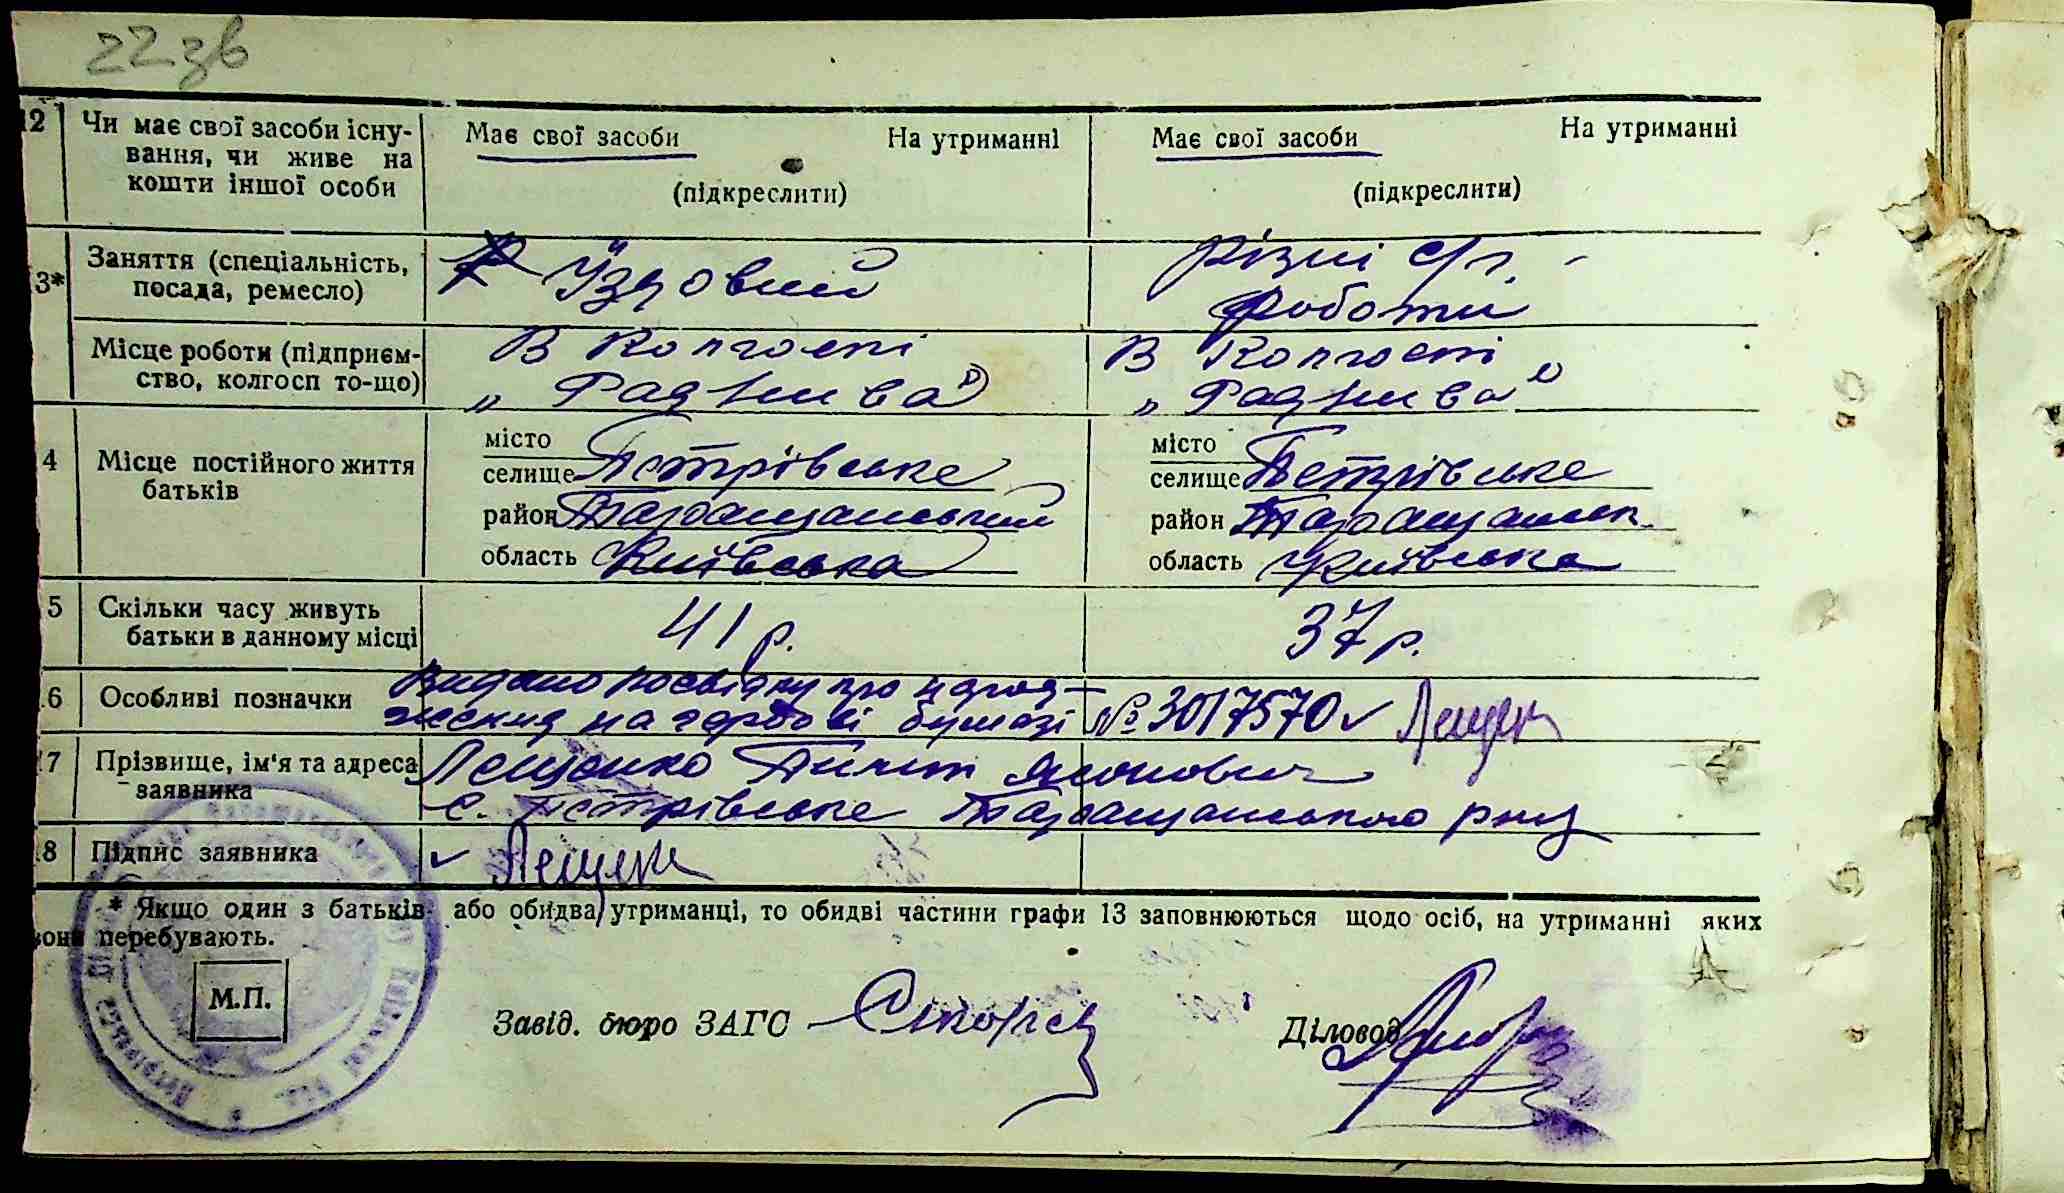 22зв
12 Чи має свої засоби існу- Має свої засоби На утриманні Має свої засоби На утриманні
вання, чи живе на
кошти іншої особи (підкреслити) (підкреслити)
3* Заняття (спеціальність, Їздовий Різні с/г.
посада, ремесло) роботи
Місце роботи (підприєм- В Колгоспі В Колгоспі
ство, колгосп то-що) „Рад Нива" „Рад Нива"
4 Місце постійного життя місто місто
батьків селище Петрівське селище Петрівське
район Таращанський район Таращанськ.
область Київська область Київська
5 Скільки часу живуть 41 р. 37 р.
батьки в данному місці
6 Особливі позначки Видано посвідку про народ-
ження на гербові бумазі № 3017570 Лещен
7 Прізвище, ім'я та адреса Лещенко Пилип
заявника с. Петрівське Таращанського р-ну
8 Підпис заявника Лещен
* Якщо один з батьків або обидва утриманці, то обидві частини графи 13 заповнюються щодо осіб, на утриманні яких
вони перебувають.
М.П.
Завід. бюро ЗАГС Діловод